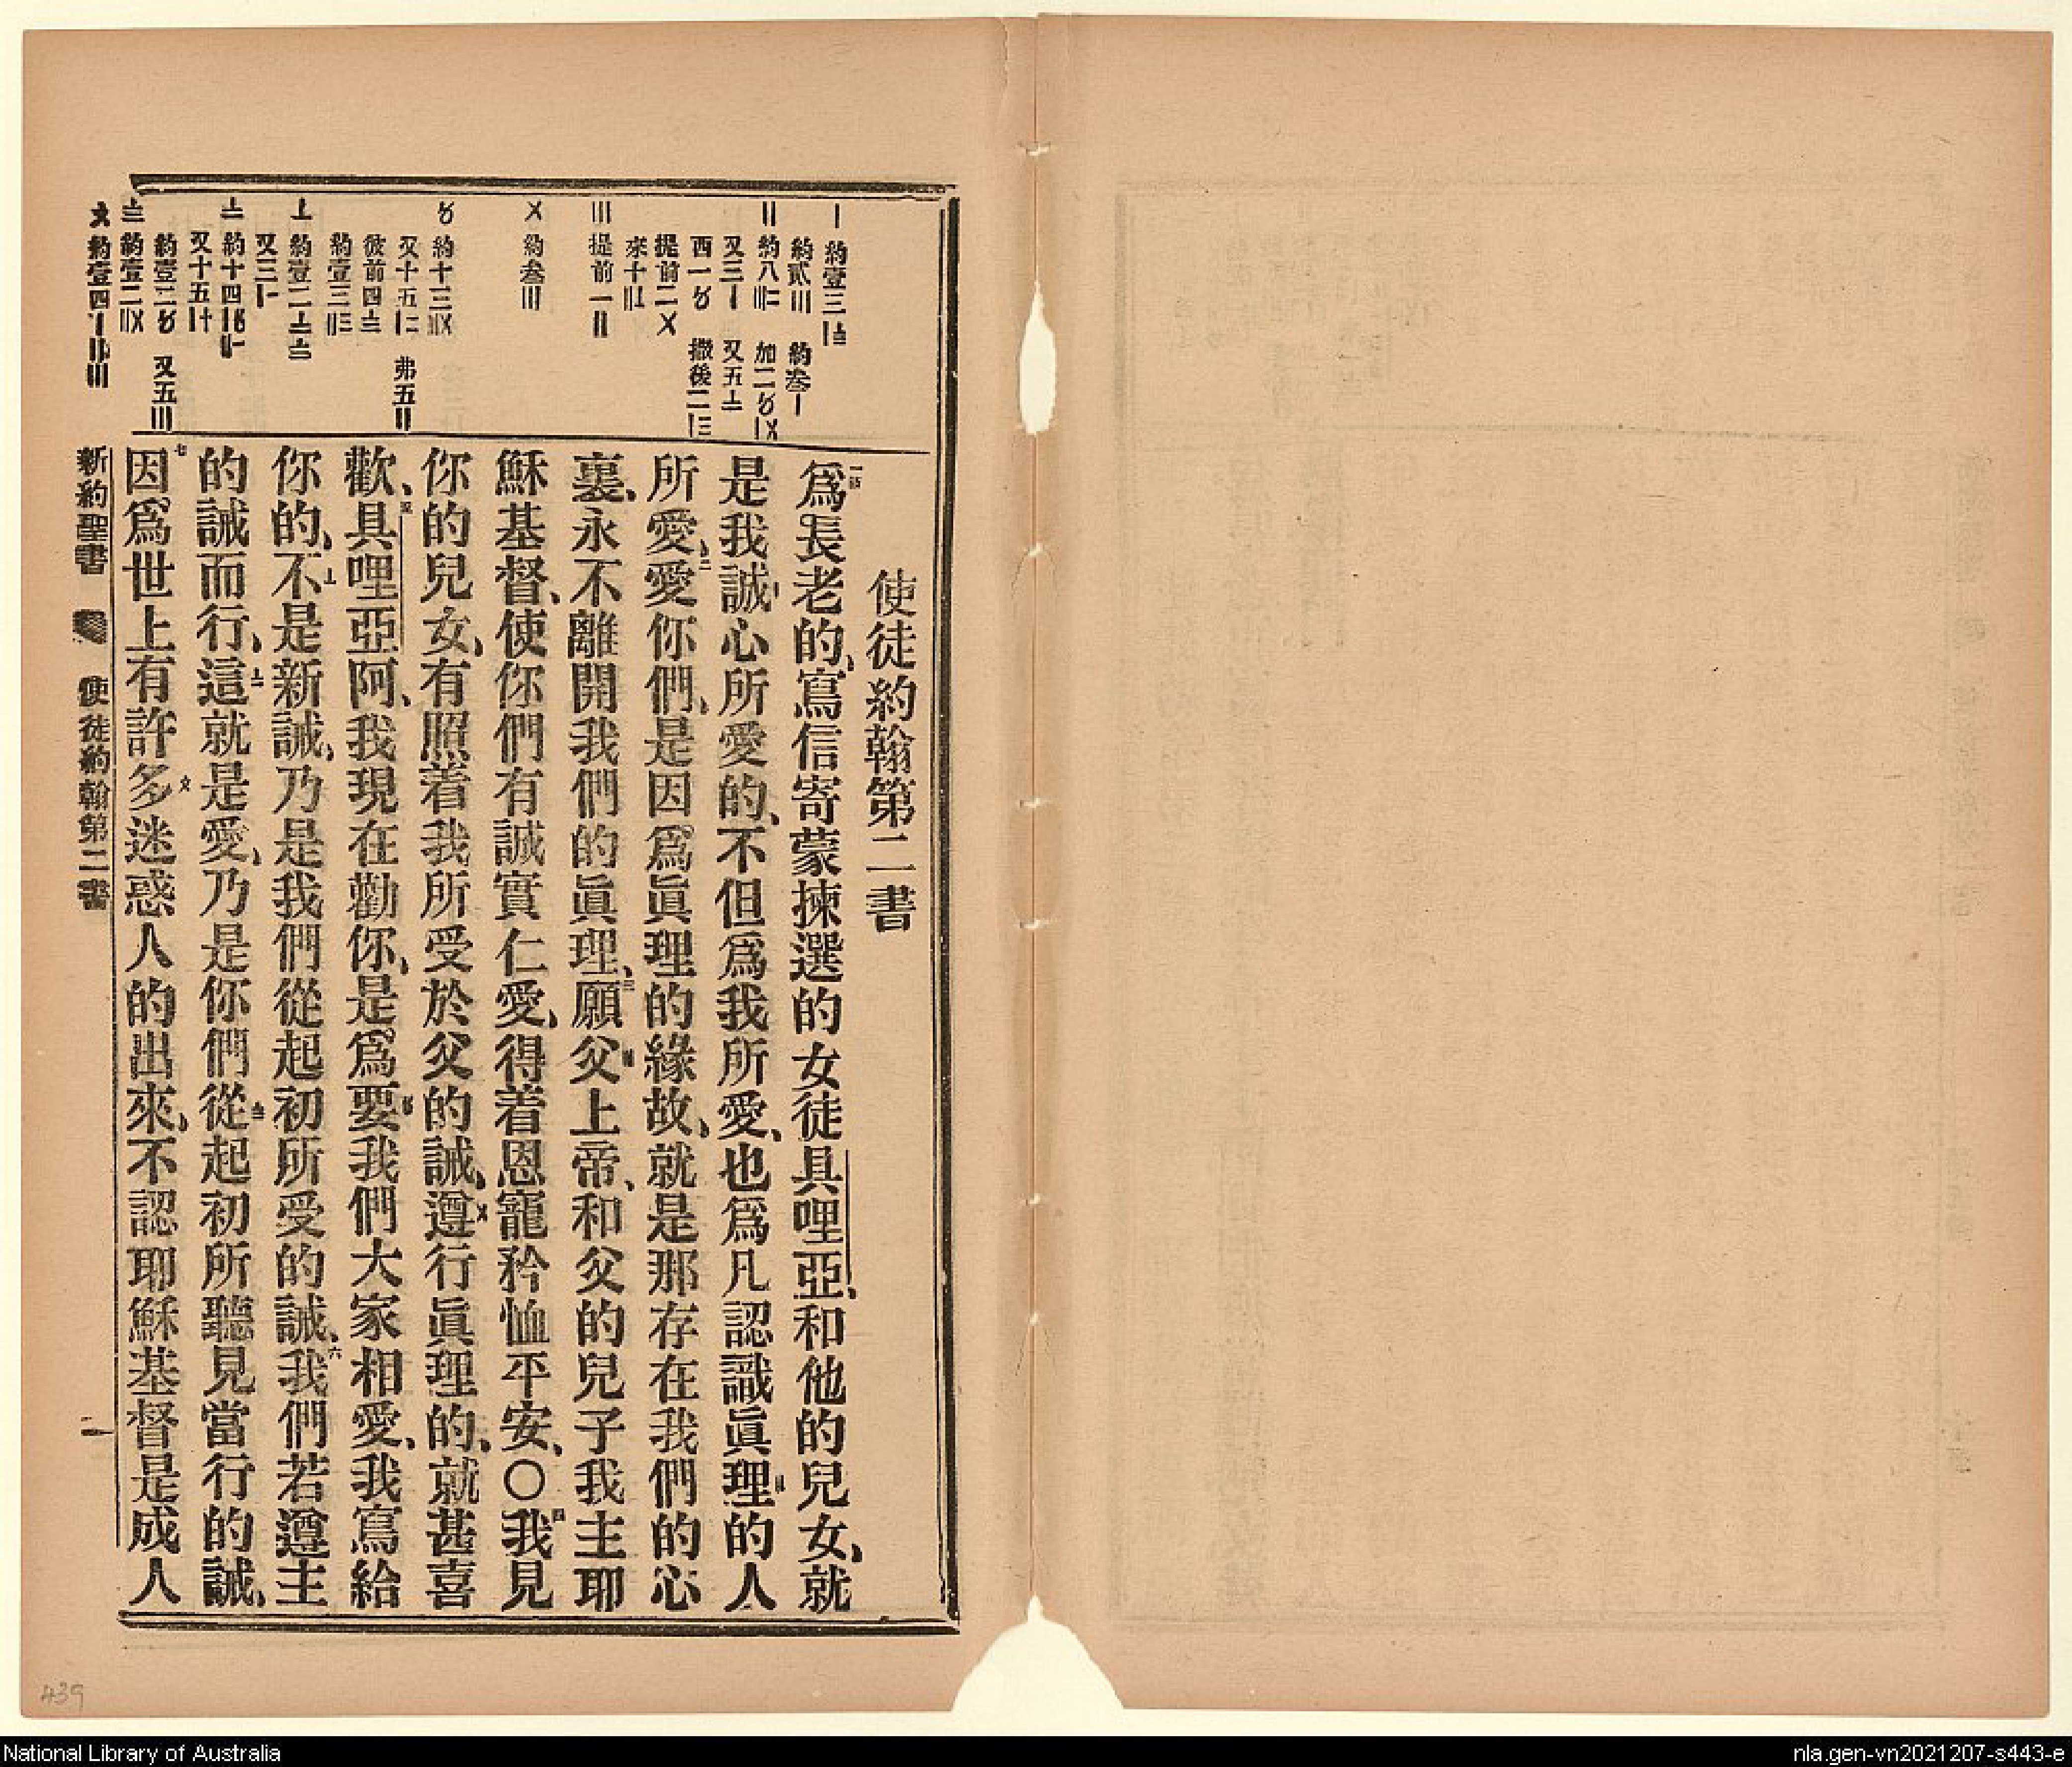 約壹三〡
約貳〣 約叁〡
約八 加二
又三〡 又五
西一 撒後二
提前二〤
來十
〣 提前一〢
〤 約叁〣
約十三
又十五 弗五〢
彼前四
約壹三
約壹二
又三
約十四
又十五
約壹二 又五〣
約壹二
約壹四
使徒約翰第二書
爲長老的、寫信寄蒙揀選的女徒具哩亞、和他的兒女、就
是我誠心所愛的、不但爲我所愛、也爲凡認識眞理的人
所愛、愛你們、是因爲眞理的緣故、就是那存在我們的心
裏、永不離開我們的眞理、願父上帝、和父的兒子我主耶
穌基督、使你們有誠實仁愛、得着恩寵矜恤平安、○我見
你的兒女、有照着我所受於父的誡、遵行眞理的、就甚喜
歡、具哩亞阿、我現在勸你、是爲要我們大家相愛、我寫給
你的、不是新誡、乃是我們從起初所受的誡、我們若遵主
的誡而行、這就是愛、乃是你們從起初所聽見當行的誡、
因爲世上有許多迷惑人的出來、不認耶穌基督是成人
新約聖書 使徒約翰第二書 一
439
National Library of Australia
nla.gen-vn2021207-s443-e